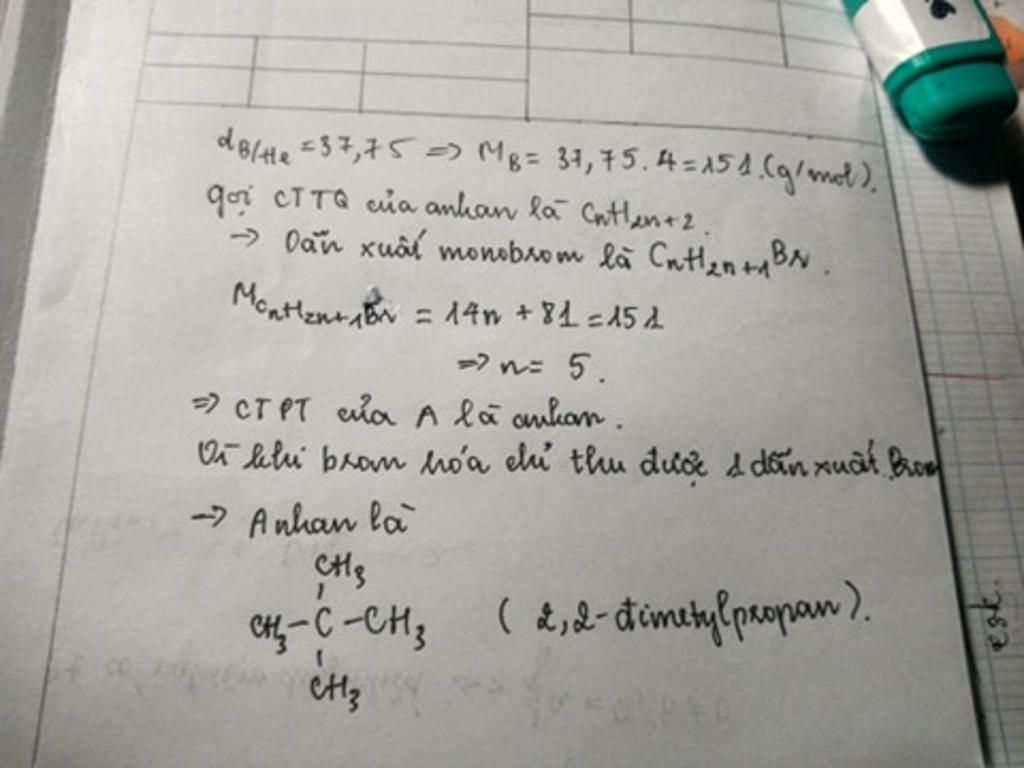 d_B/He = 37,75 => M_B = 37,75 . 4 = 151 (g/mol).
gọi CTTQ của ankan là CnH2n+2.
-> Dẫn xuất monobrom là CnH2n+1Br.
M_CnH2n+1Br = 14n + 81 = 151
=> n = 5.
=> CTPT của A là ankan.
Vì khi brom hóa chỉ thu được 1 dẫn xuất Brom
-> Ankan là
CH3
CH3-C-CH3 (2,2-đimetylpropan).
CH3